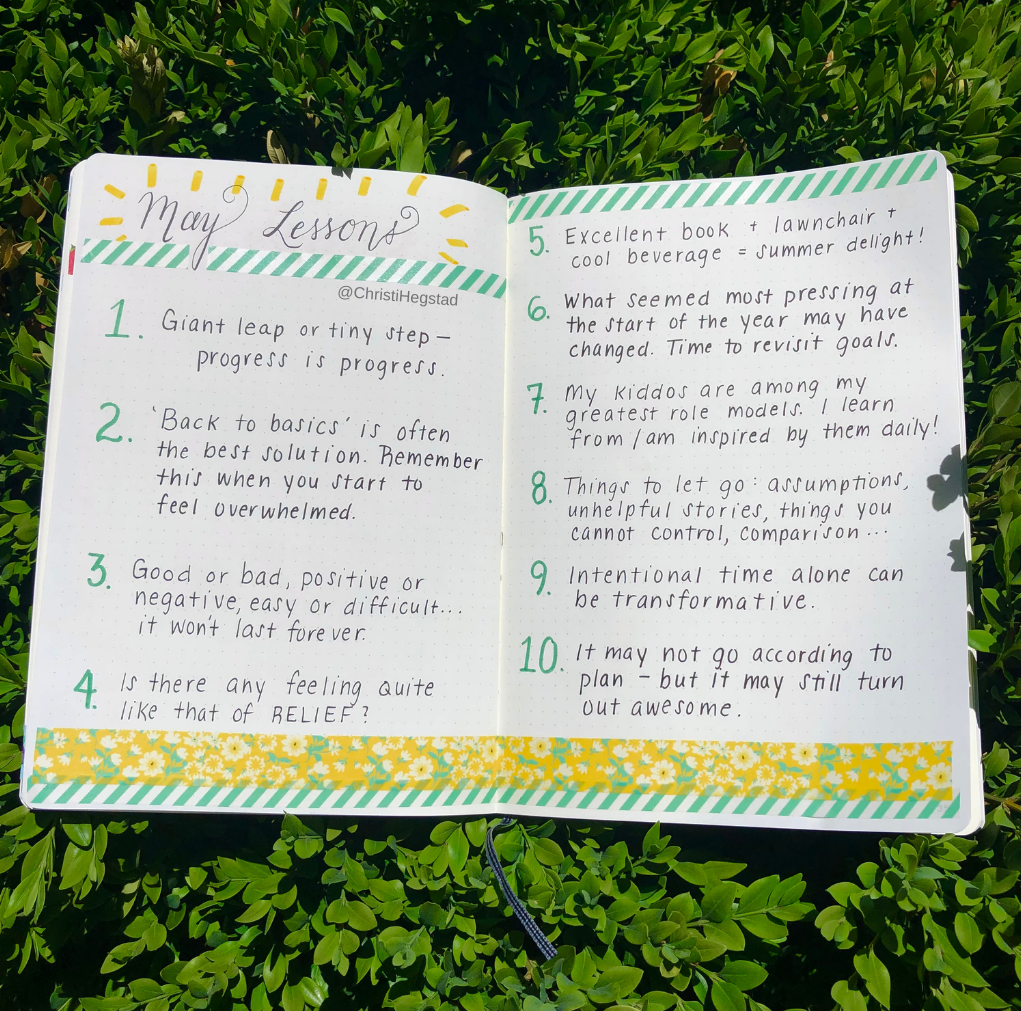 May Lessons
@ChristiHegstad
1. Giant leap or tiny step –
progress is progress.
2. 'Back to basics' is often
the best solution. Remember
this when you start to
feel overwhelmed.
3. Good or bad, positive or
negative, easy or difficult...
it won't last forever.
4. Is there any feeling quite
like that of RELIEF?
5. Excellent book + lawnchair +
cool beverage = summer delight!
6. What seemed most pressing at
the start of the year may have
changed. Time to revisit goals.
7. My kiddos are among my
greatest role models. I learn
from/am inspired by them daily!
8. Things to let go: assumptions,
unhelpful stories, things you
cannot control, comparison...
9. Intentional time alone can
be transformative.
10. It may not go according to
plan – but it may still turn
out awesome.